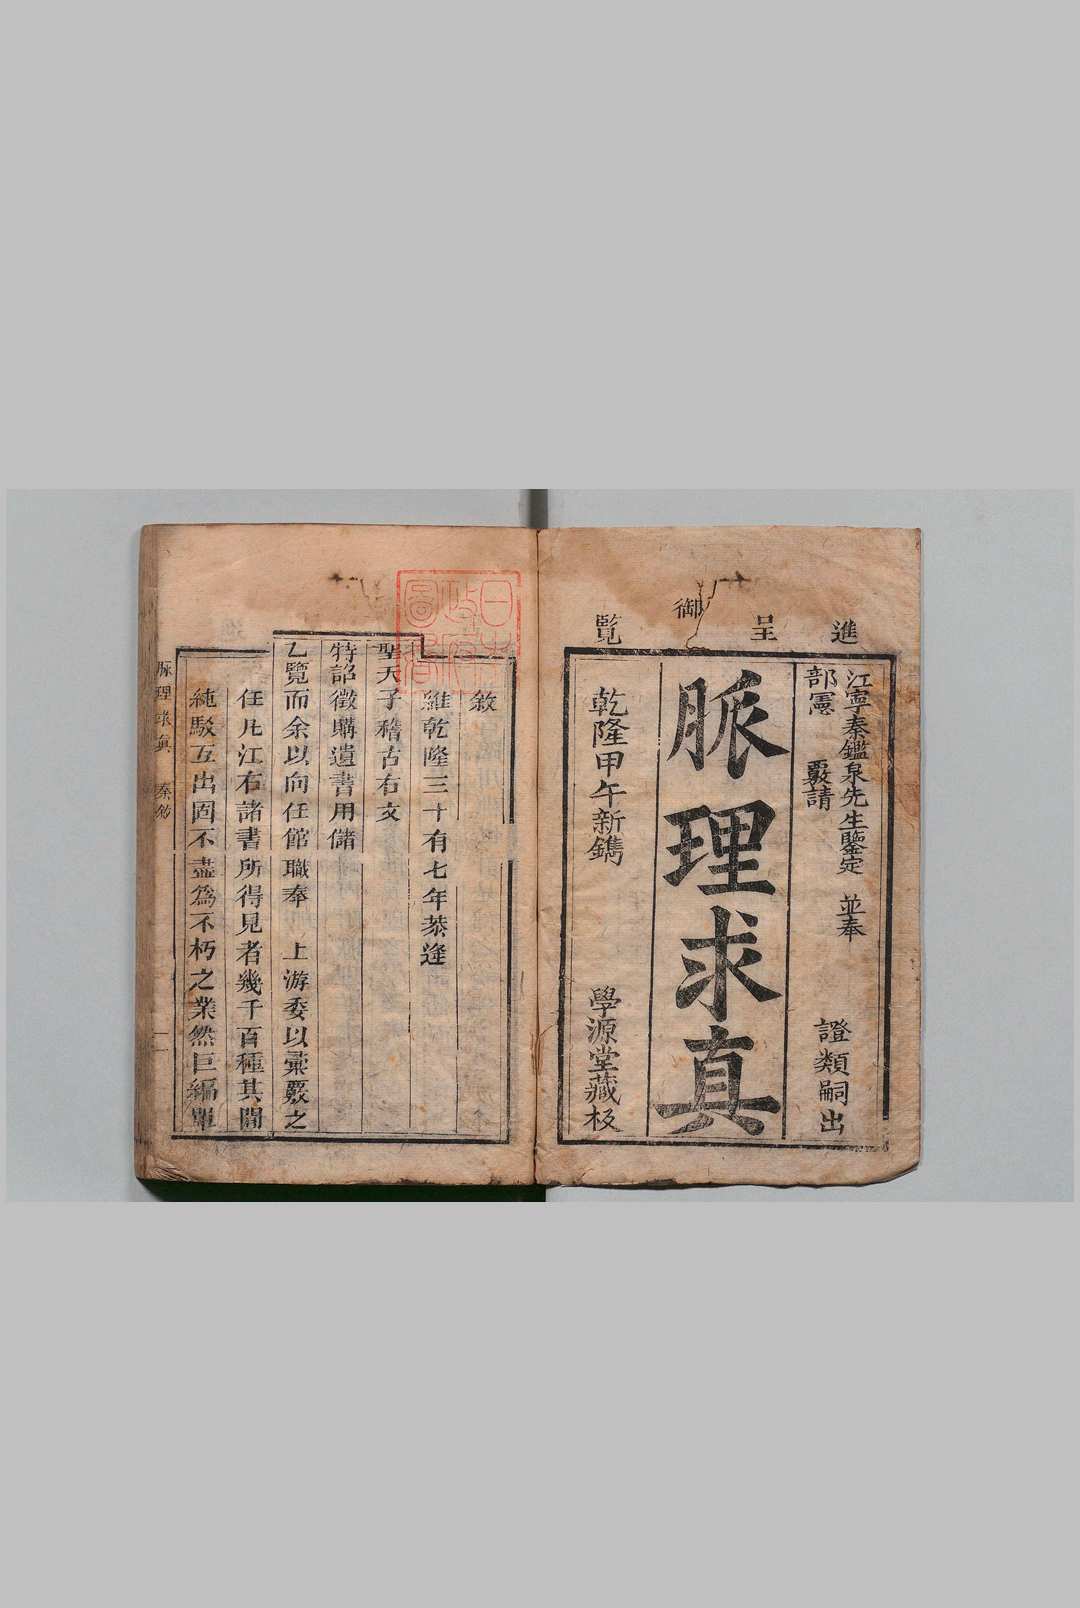 進呈御覽
江寧秦鑑泉先生鑒定 並奉
部憲 覈請
證類嗣出
脈理求真
乾隆甲午新鐫
學源堂藏板
敘
維乾隆三十有七年恭逢
聖天子稽古右文
特詔徵購遺書用儲
乙覽而余以向任館職奉 上游委以彙覈之
任凡江右諸書所得見者幾千百種其間
純駁互出固不盡為不朽之業然巨編單
脉理求真 秦敘 一
日本政府圖書